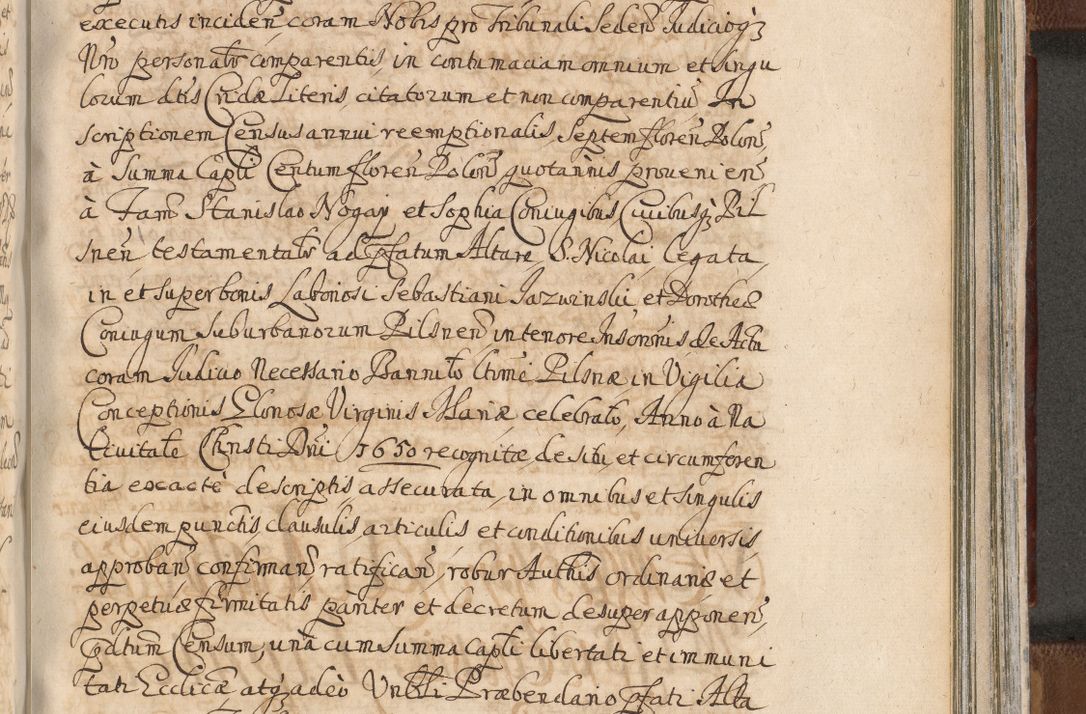 executis inciden̄ coram Nobis pro Tribunali Seden̄ Iudicioqȝ
Nr̄o personalr̄ comparentis, in contumaciam omnium et singu
lorum dt̄is Cr̄idæ Literis, citatorum et non comparentiū In
scriptionem Censusannui reemptionalis, Septem floren̄ Polon̄,
à Summa Capl̄i Centum floren̄ Polon̄ quotannis provenien̄
à Fam̄ Stanislao Nogay et Sophia Coniugibus, Civibusqȝ Pil
snen̄ testamentalr̄ ad p̄fatum Altare, S. Nicolai legata,
in et super bonis Laboriosi Sebastiani Jazwinski et Dorotheæ
Coniugum Suburbanorum Pilsnen̄ in tenore Inscr̄onis de Actu
coram Iudicio Necessario Bannito ltimè Pilsnæ in Vigilia
Conceptionis Glōriosæ Virginis Mariæ celebrato, Anno à Na
tivitate Christi Dn̄i 1650 recognitæ, de situ, et circumferen
tia exactè descriptis, assecurata, in omnibus et singulis
eiusdem punctis, clausulis, articulis et conditionibus universis,
approban̄, confirman̄, ratifican̄, robur Auth̄is ordinariæ et
perpetuæ firmitatis pariter et decretum desuper apponen̄,
p̄ditum Censum, unà cum Summa capl̄i libertati et immuni
tati Ecclicæ atqȝ adeò Vnbl̄i Præbendario p̄fati Alta